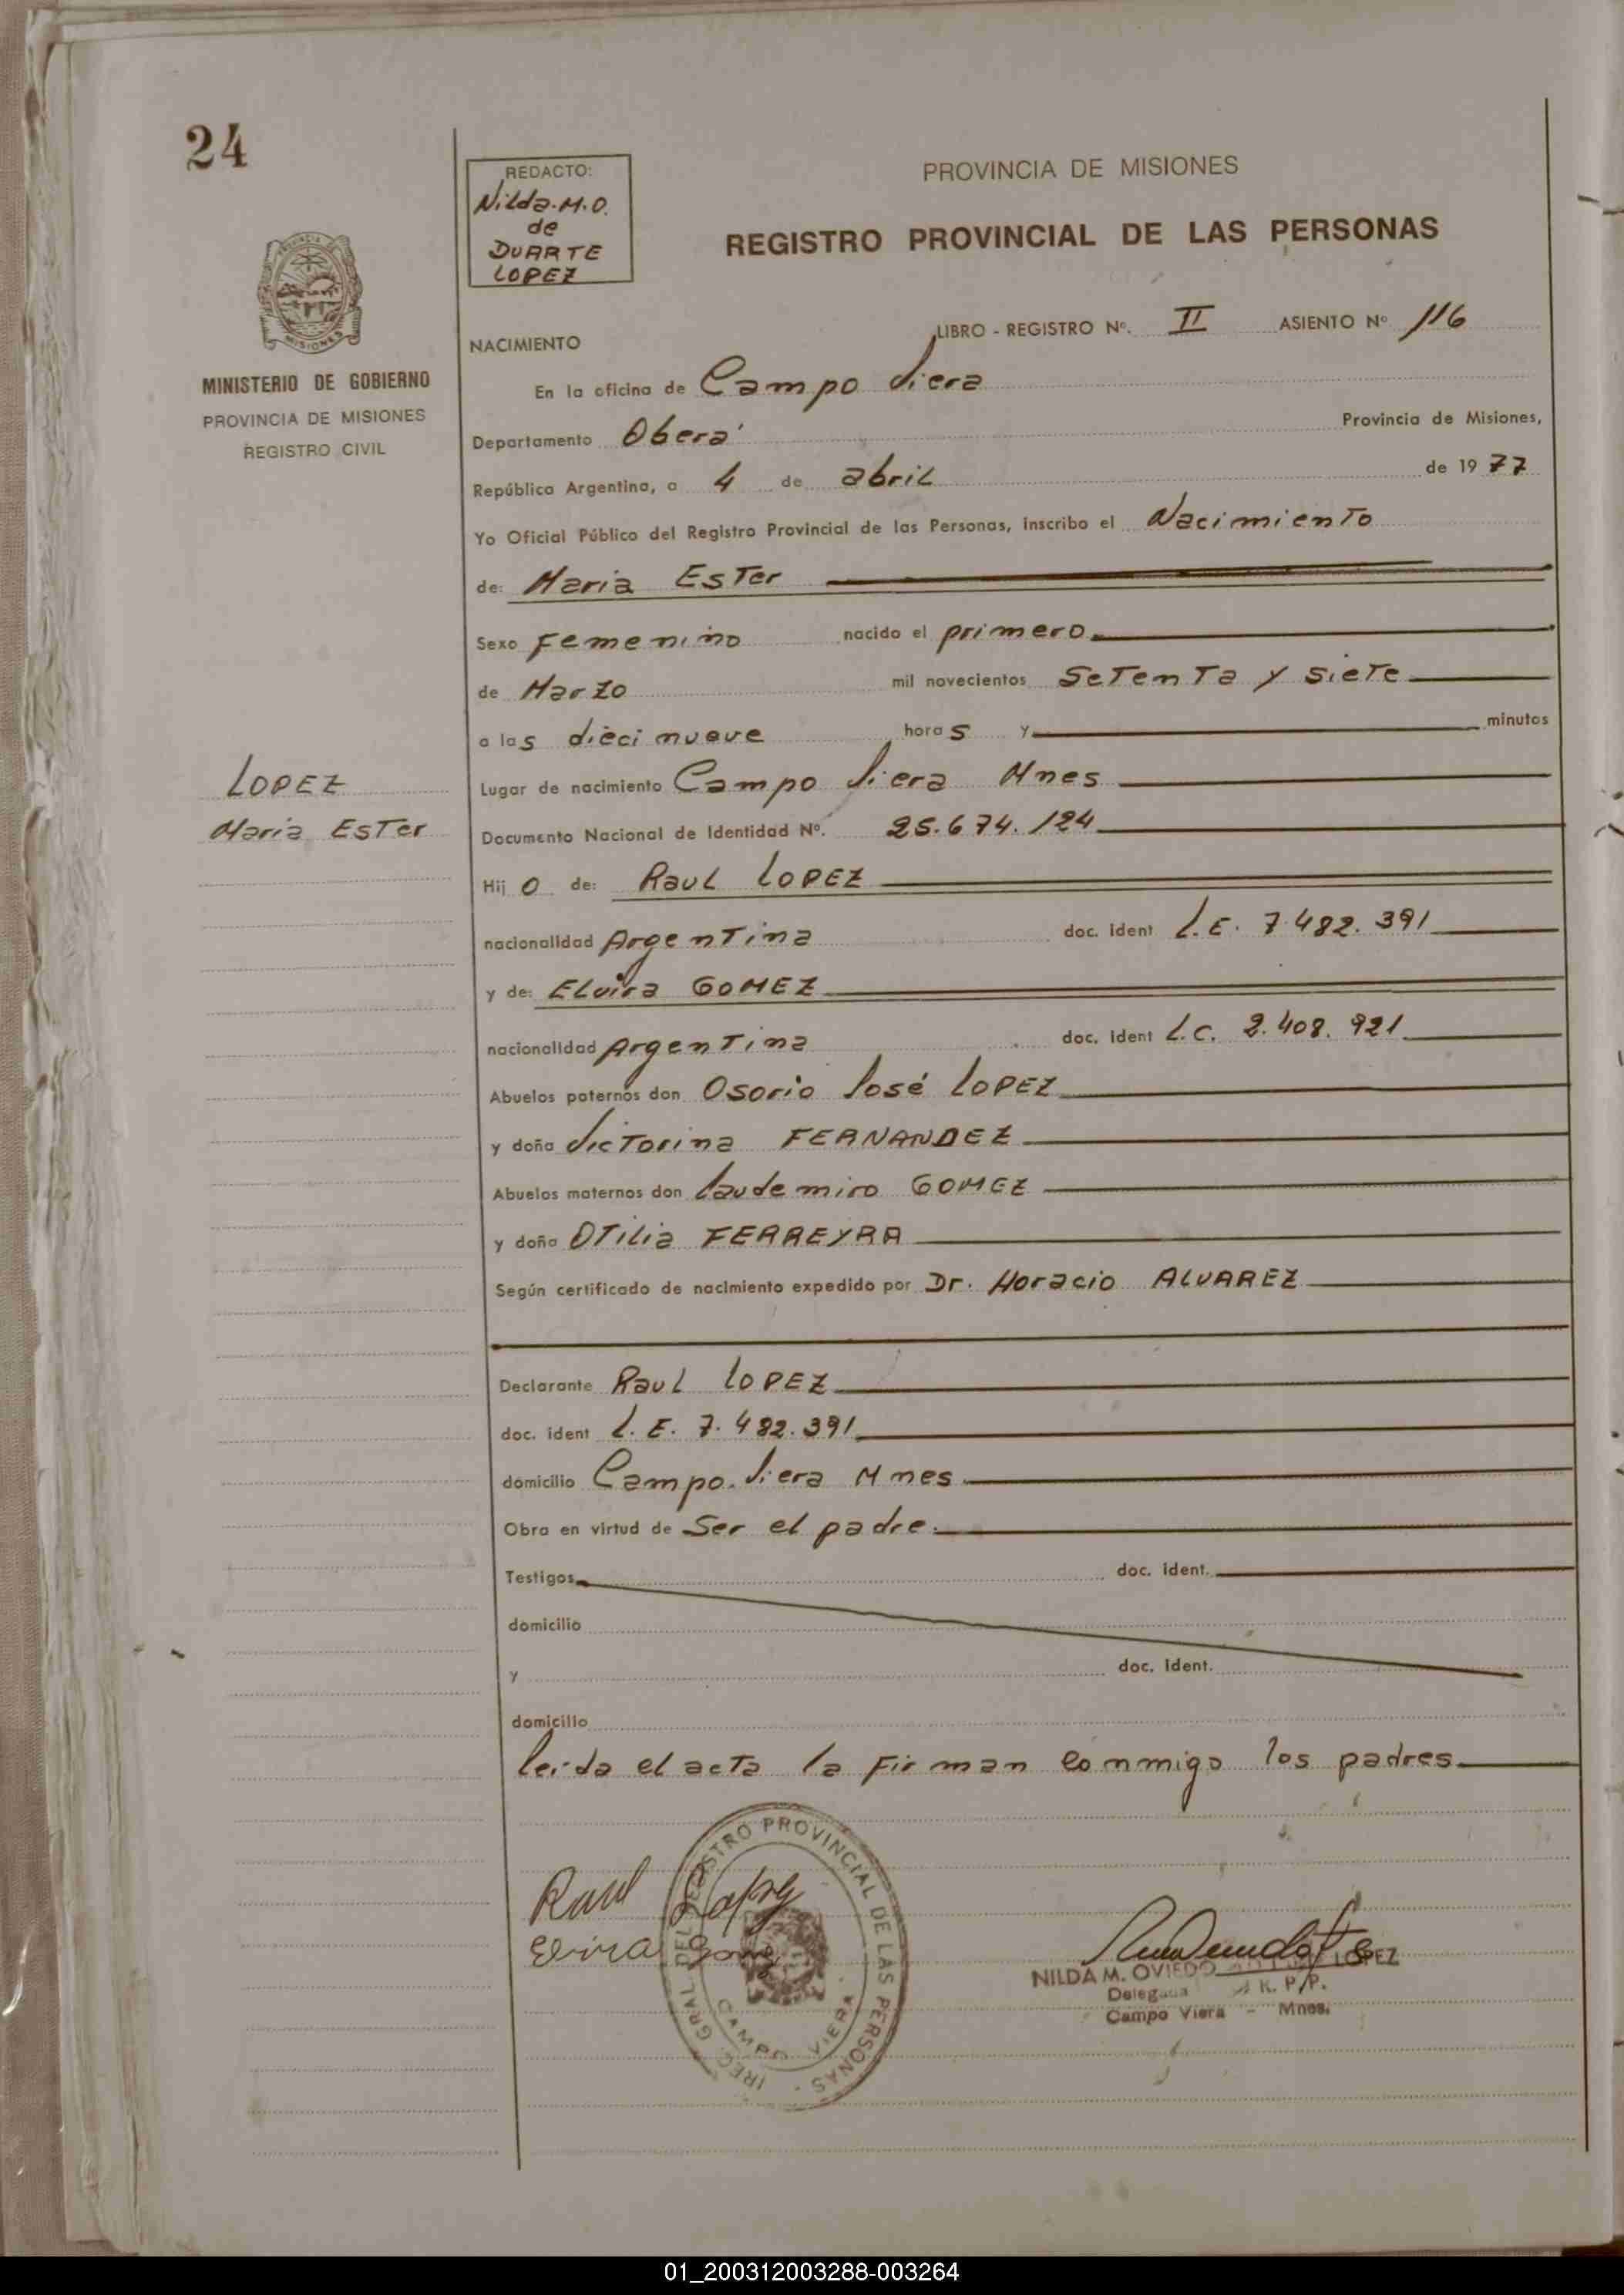 24
REDACTO:
Nilda.M.O.
de
DUARTE
LOPEZ
PROVINCIA DE MISIONES
REGISTRO PROVINCIAL DE LAS PERSONAS
MISIONES
MINISTERIO DE GOBIERNO
PROVINCIA DE MISIONES
REGISTRO CIVIL
NACIMIENTO LIBRO - REGISTRO Nº. II ASIENTO Nº 116
En la oficina de Campo Viera
Departamento Oberá Provincia de Misiones,
República Argentina, a 4 de abril de 1977
Yo Oficial Público del Registro Provincial de las Personas, inscribo el Nacimiento
de: Maria Ester
Sexo Femenino nacido el primero
de Marzo mil novecientos Setenta y siete
a las dieci nueve horas y minutos
Lugar de nacimiento Campo Viera Mnes
LOPEZ
Maria Ester
Documento Nacional de Identidad Nº. 25.674.124
Hijo de: Raul LOPEZ
nacionalidad Argentina doc. ident L.E. 7.482.391
y de: Elvira GOMEZ
nacionalidad Argentina doc. ident L.C. 2.408.921
Abuelos paternos don Osorio José LOPEZ
y doña Victorina FERNANDEZ
Abuelos maternos don Laudemiro GOMEZ
y doña OTilia FERREYRA
Según certificado de nacimiento expedido por Dr. Horacio ALVAREZ
Declarante Raul LOPEZ
doc. ident L.E. 7.482.391
domicilio Campo Viera Mnes
Obra en virtud de Ser el padre.
Testigos doc. ident.
domicilio
y doc. ident.
domicilio
leida el acta la Firman conmigo los padres
Raul Lopez
Elvira Gomez
REGISTRO PROVINCIAL DE LAS PERSONAS
CAMPO VIERA
NILDA M. OVIEDO LOPEZ
Delegada R. P. P.
Campo Viera - Mnes.
01_200312003288-003264